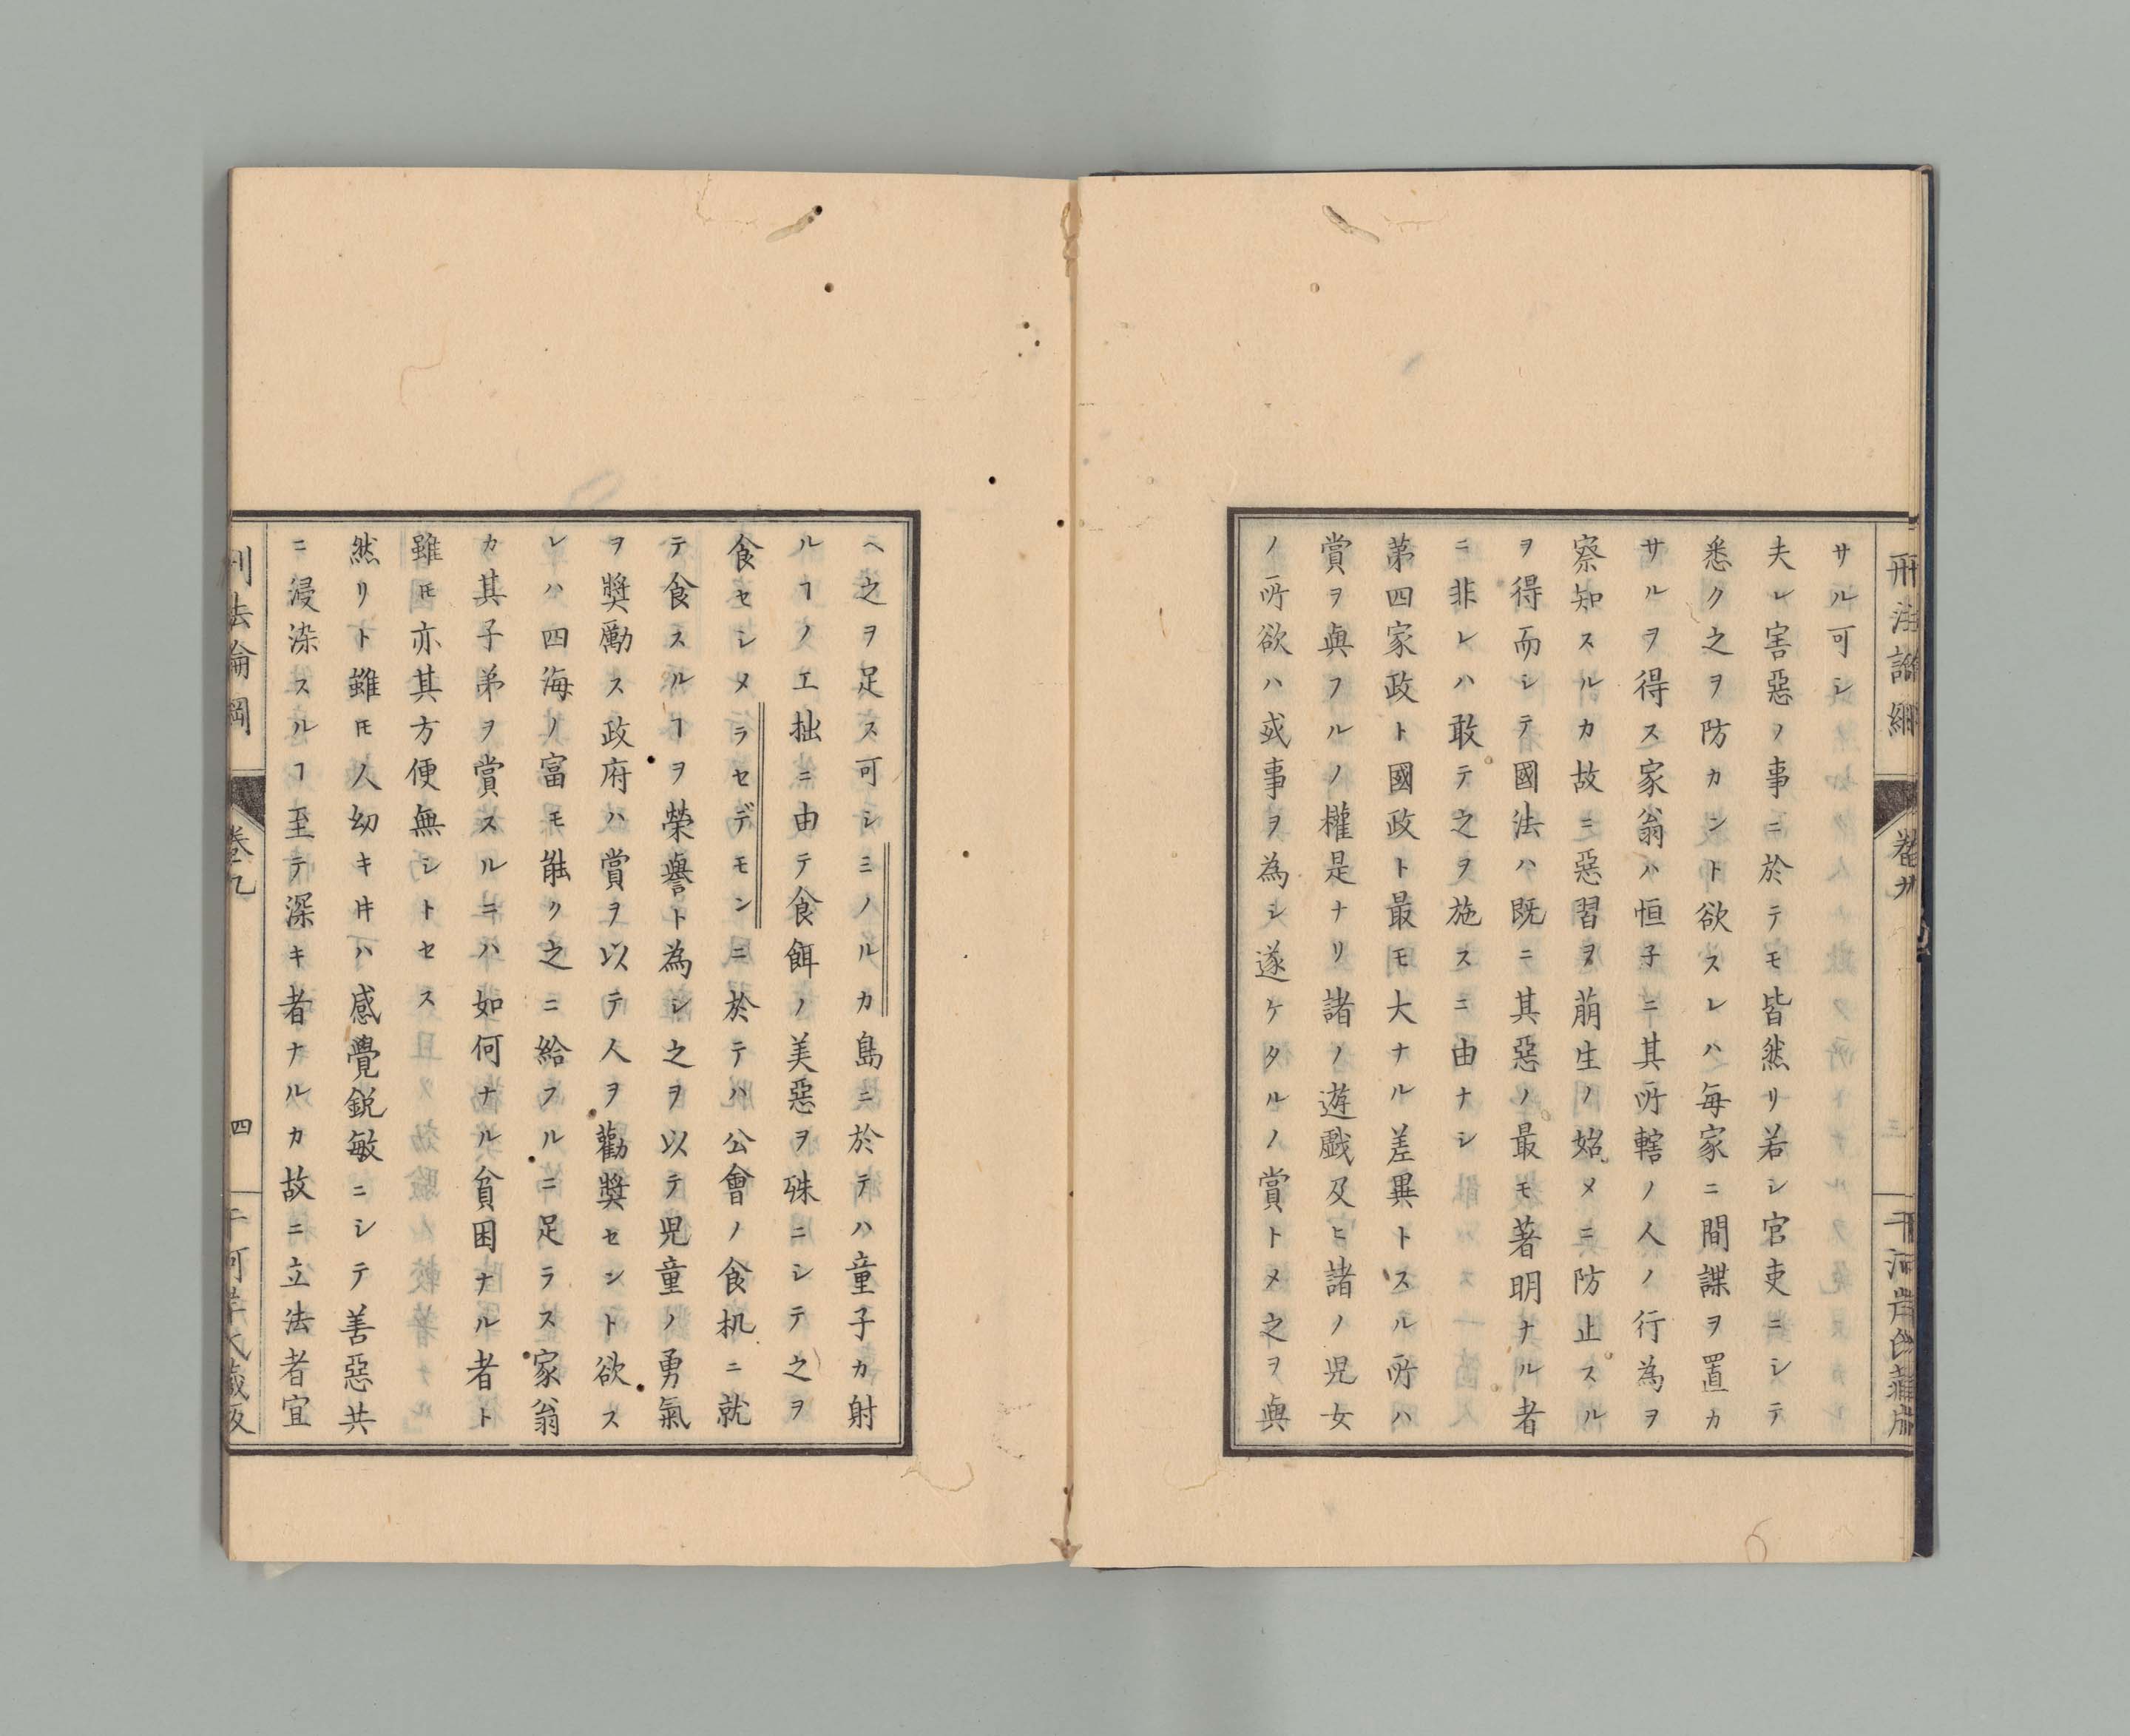 サル可シ
夫レ害惡ノ事ニ於テモ皆然リ若シ官吏ニシテ
悉ク之ヲ防カント欲スレハ毎家ニ間諜ヲ置カ
サルヲ得ス家翁ハ恒子ニ其所轄ノ人ノ行為ヲ
察知スルカ故ニ惡習ヲ萠生ノ始メニ防止スル
ヲ得而シテ國法ハ既ニ其惡ノ最モ著明ナル者
ニ非レハ敢テ之ヲ施スニ由ナシ
第四家政ト國政ト最モ大ナル差異トスル所ハ
賞ヲ與フルノ權是ナリ諸ノ遊戯及ヒ諸ノ児女
ノ所欲ハ或事ヲ為シ遂ケタルノ賞トメ之ヲ與
ヘ之ヲ足ス可シミノルカ島ニ於テハ童子カ射
ルヿノ工拙ニ由テ食餌ノ美惡ヲ殊ニシテ之ヲ
食セシメラセデモンニ於テハ公會ノ食机ニ就
テ食スルヿヲ榮譽ト為シ之ヲ以テ児童ノ勇氣
ヲ獎勵ス政府ハ賞ヲ以テ人ヲ勸獎セント欲ス
レハ四海ノ富モ能ク之ニ給フルニ足ラス家翁
カ其子弟ヲ賞スルニハ如何ナル貧困ナル者ト
雖モ亦其方便無シトセス
然リト雖モ人幼キ時ハ感覺鋭敏ニシテ善惡共
ニ浸染スルヿ至テ深キ者ナルカ故ニ立法者宜
刑法論綱
卷九
四
河岸氏藏版